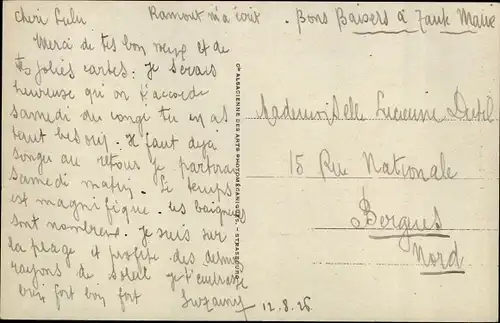 Cheri Lulu
Ramout m'a écrit
. Bons Baisers à Tante Marie
Merci de tes bon vœux et de
tes jolies cartes. Je serais
heureuse qu'on t'accorde
samedi du congé tu en as
tant besoin. Il faut dejà
songer au retour je partirai
samedi matin. Le temps
est magnifique. les baigneurs
sont nombreux. Je suis sur
la plage et profite des derniers
rayons de soleil je t'embrasse
bien fort bien fort
Suzanne 12.8.26
Cie ALSACIENNE DES ARTS PHOTOMÉCANIQUES – STRASBOURG
Mademoiselle Lucienne
15 Rue Nationale
Bergues
Nord